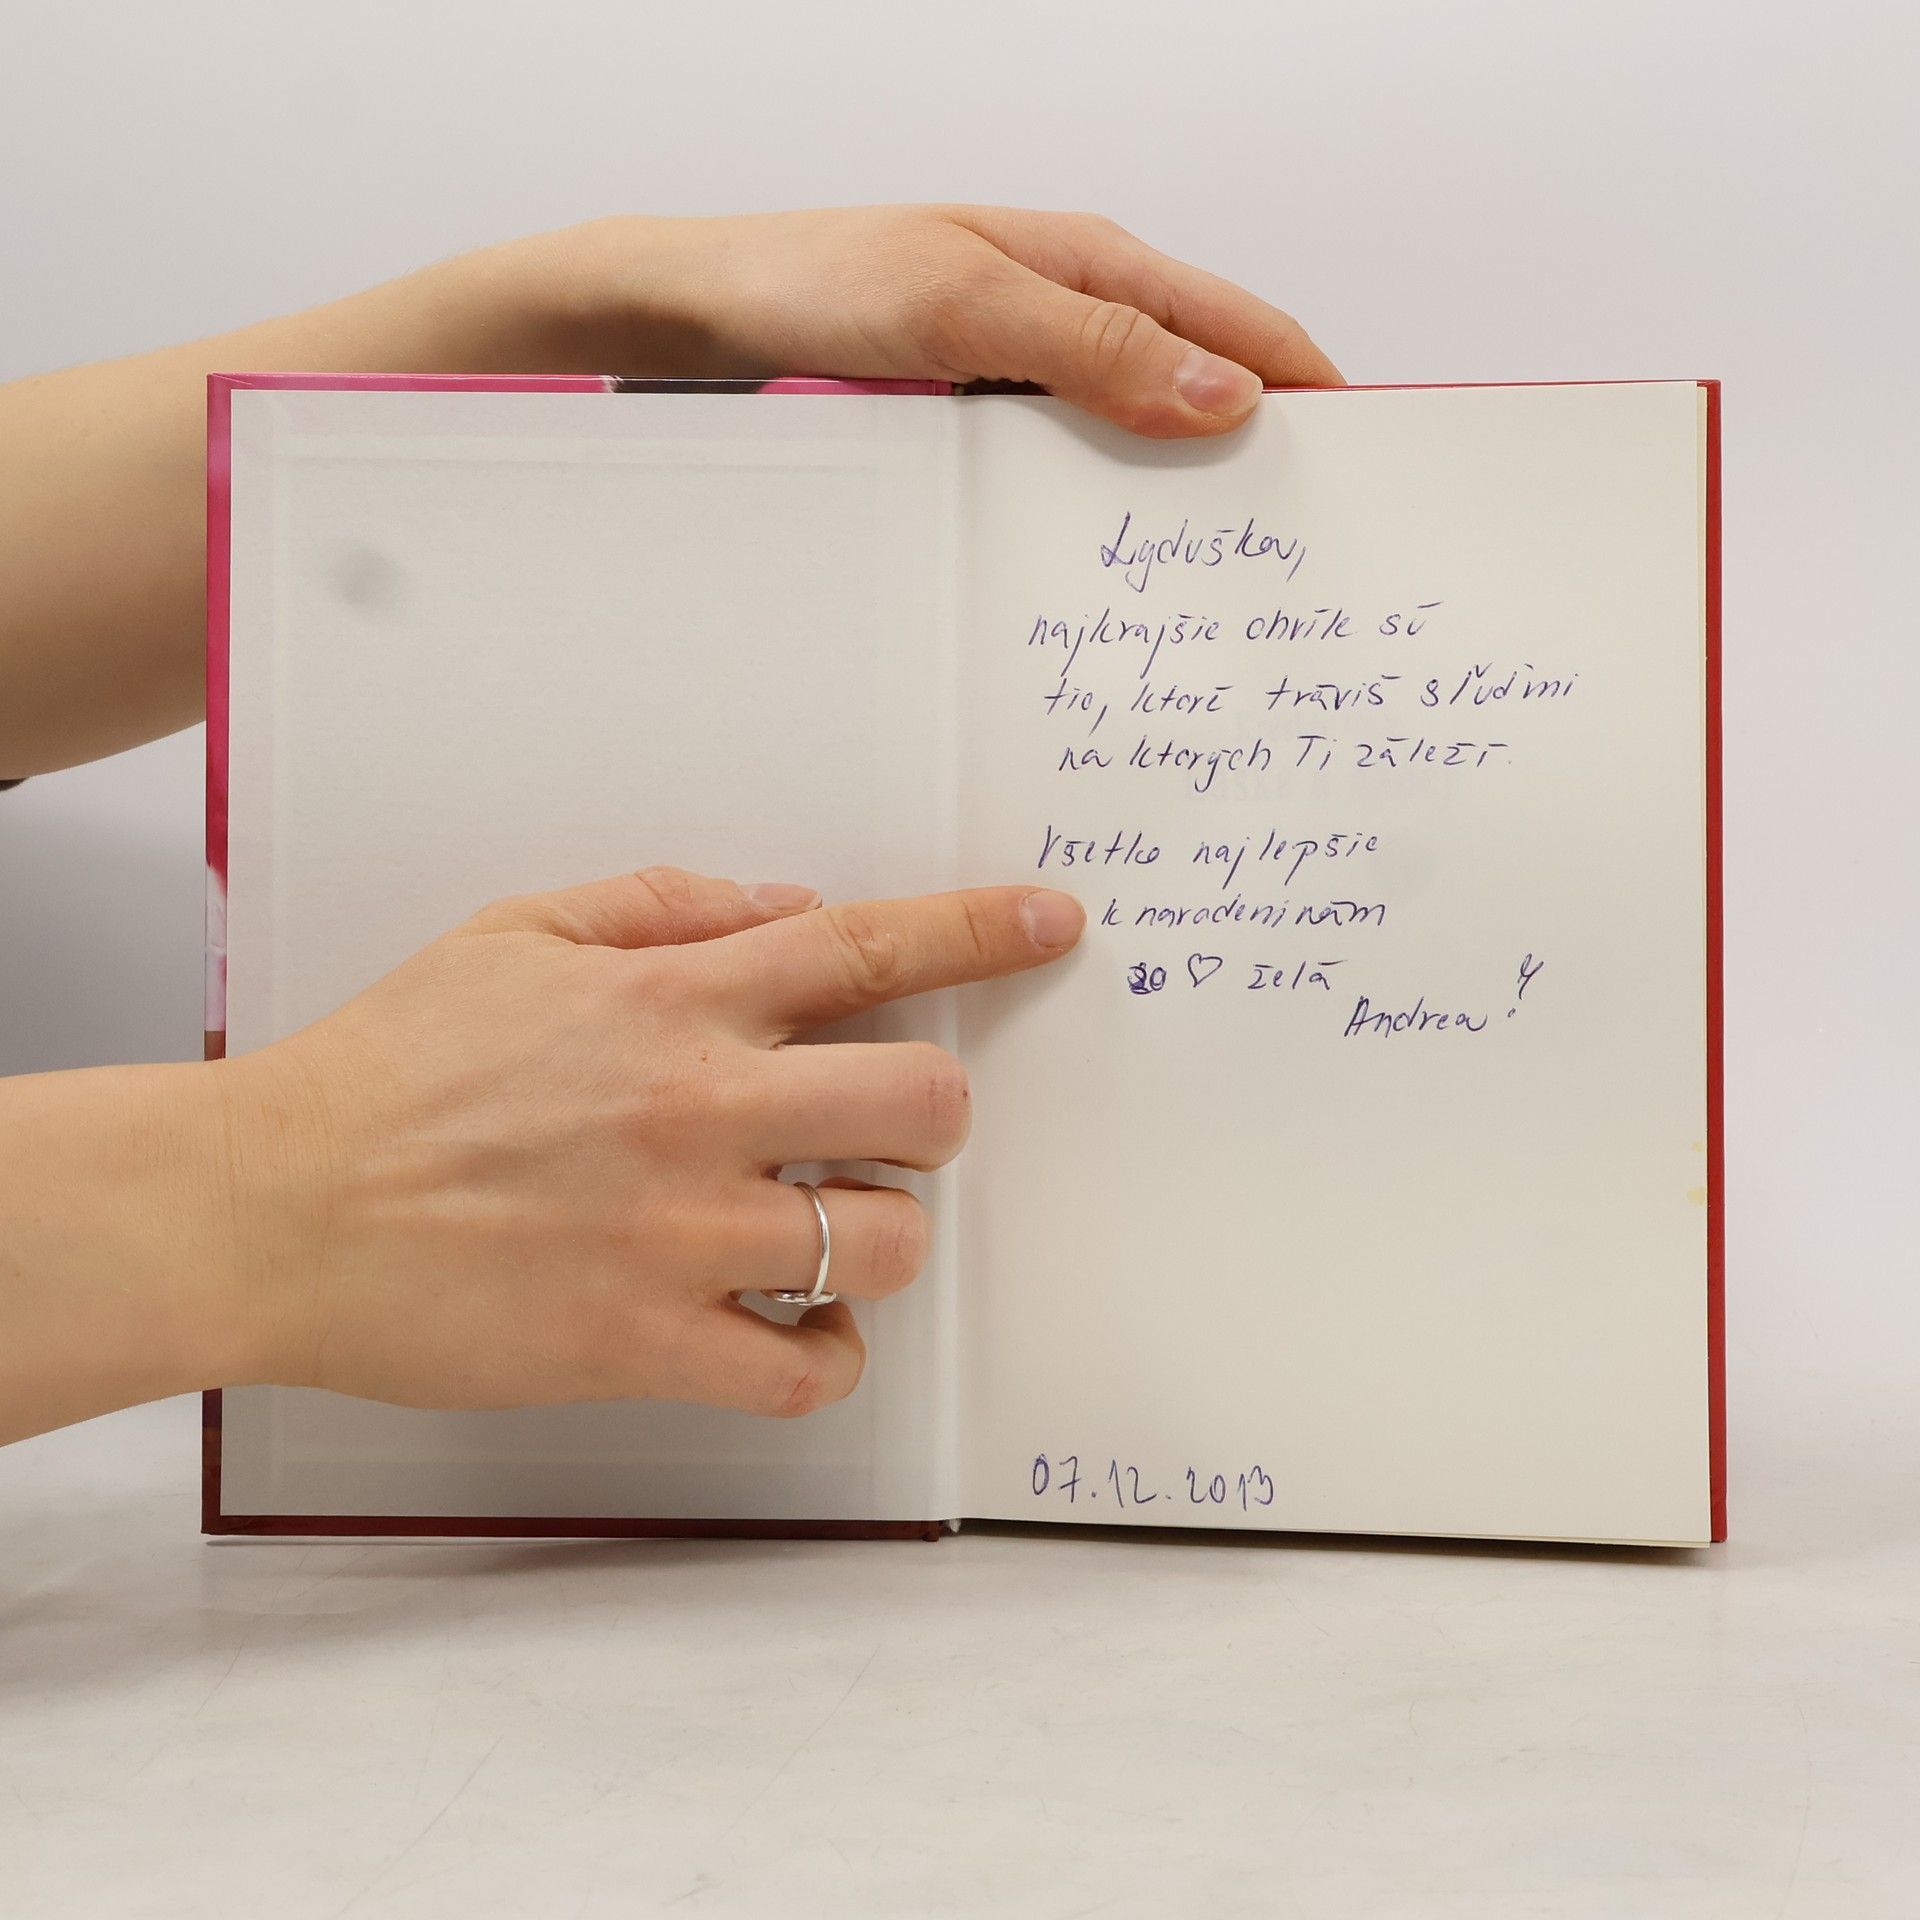 Lyduška,
najkrajšie chvíle sú
tie, ktoré tráviš s ľuďmi
na ktorých Ti záleží.
Všetko najlepšie
k narodeninám
zo ♡ želá
Andrea!
07.12.2013